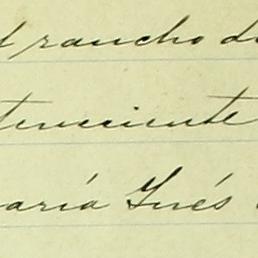 rancho d
teneciente
aría Ynés